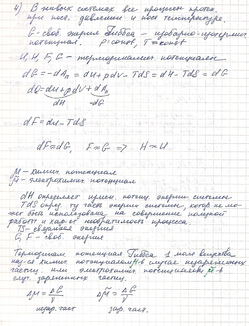 4) В живых системах все процессы прот.
при пост. давлении и пост. температуре.
G - своб. энергия Гиббса - изобарно-изотермич.
потенциал. P=const, T=const
U, H, F, G - термодинамич. потенциалы
dG = -dA = dU + pdV - TdS = dH - TdS = dG
dQ = dU + pdV + dA
dH dG
dF = dU - TdS
dF = dG, F = G => H = U
μ - химич. потенциал
μ̃ - электрохимич. потенциал
dH определяет прирост энергии системы
TdS опред. ту часть энергии системы, которая не мо-
жет быть использована на совершение полезной
работы и хар-ет необратимость процесса.
TS - связанная энергия
G, F - своб. энергия
Термодинам. потенциал Гиббса 1 моля вещества
наз-ся химич. потенциалом μ в случае незаряженных
частиц или электрохимич. потенциалом μ̃ в
случ. заряженных частиц.
Δμ = ΔG/ν Δμ̃ = ΔG/ν
незар. част. зар. част.